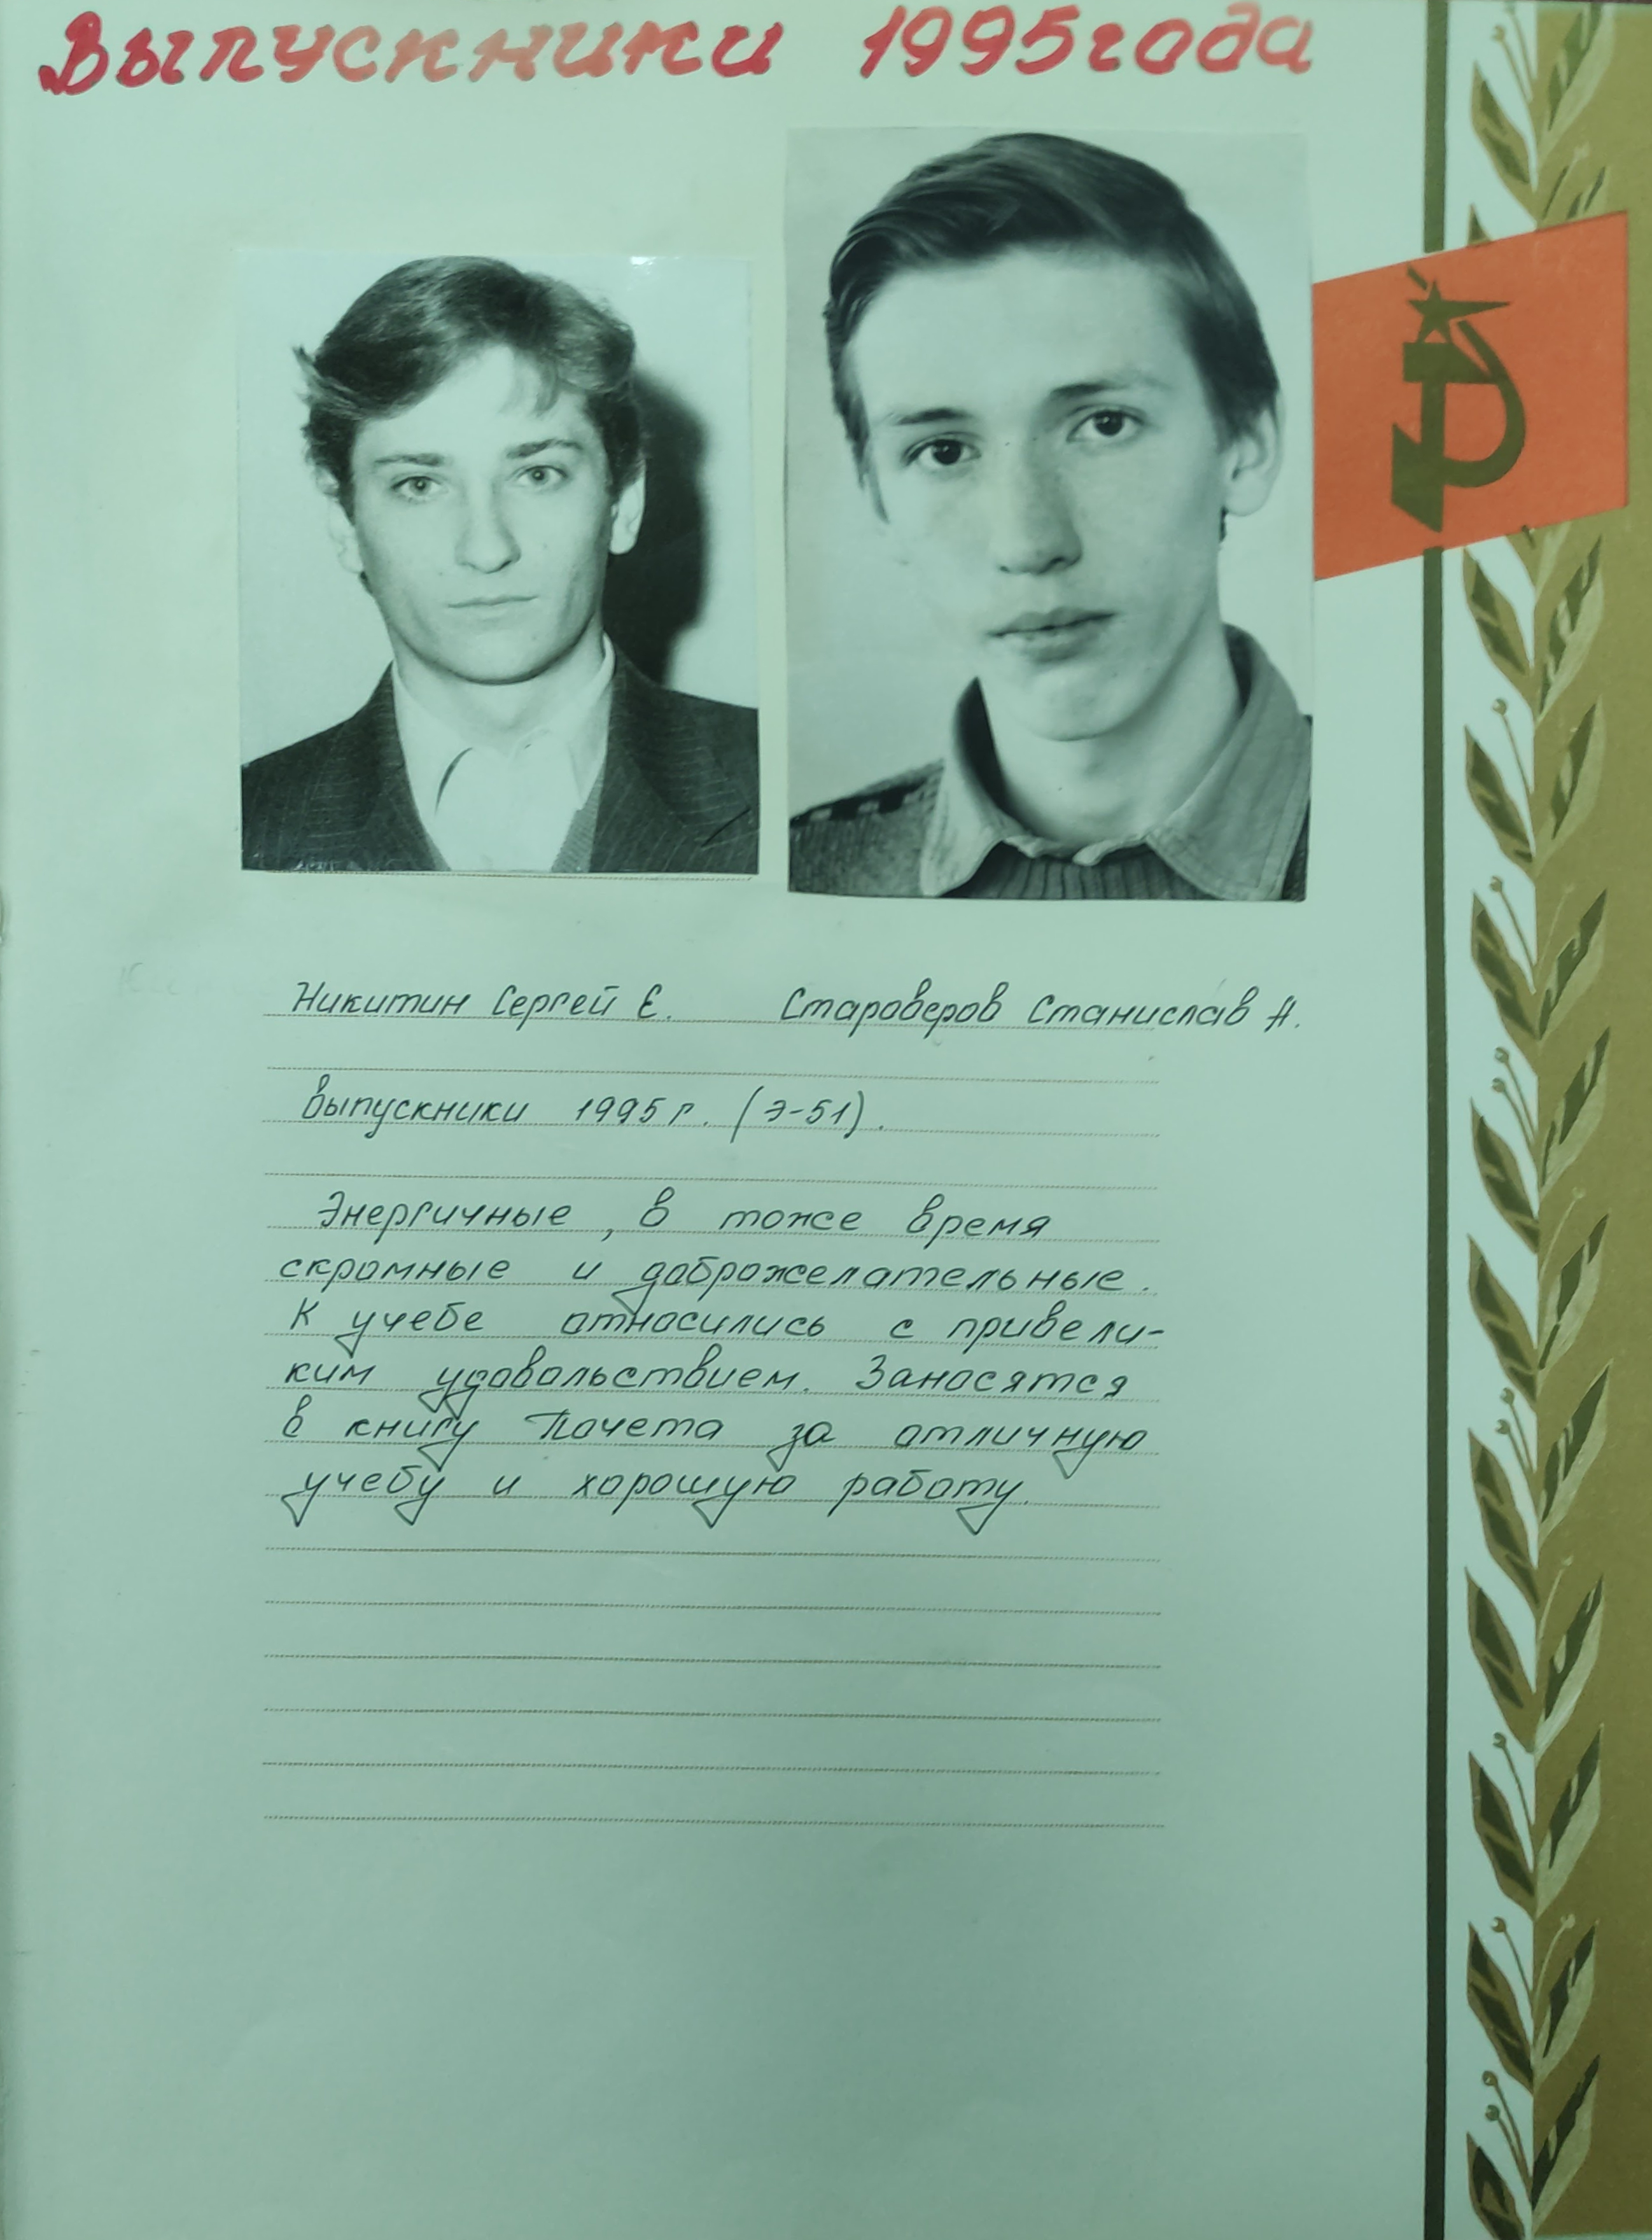 Выпускники 1995 года
Никитин Сергей Е. Староверов Станислав А.
выпускники 1995 г. (Э-51).
Энергичные, в тоже время
скромные и доброжелательные.
К учебе относились с привели-
ким удовольствием. Заносятся
в книгу Почета за отличную
учебу и хорошую работу.